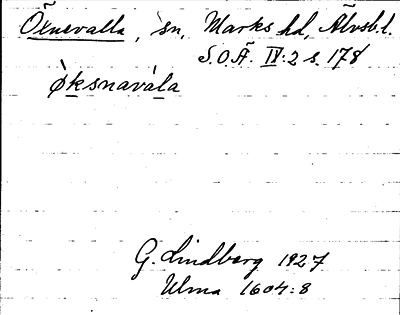 Öxnevalla, sn, Marks hd, Älvsb.l.
S.O.Ä. IV:2 s. 178
ø̀ksnavàla
G. Lindberg 1927
Ulma 1604:8